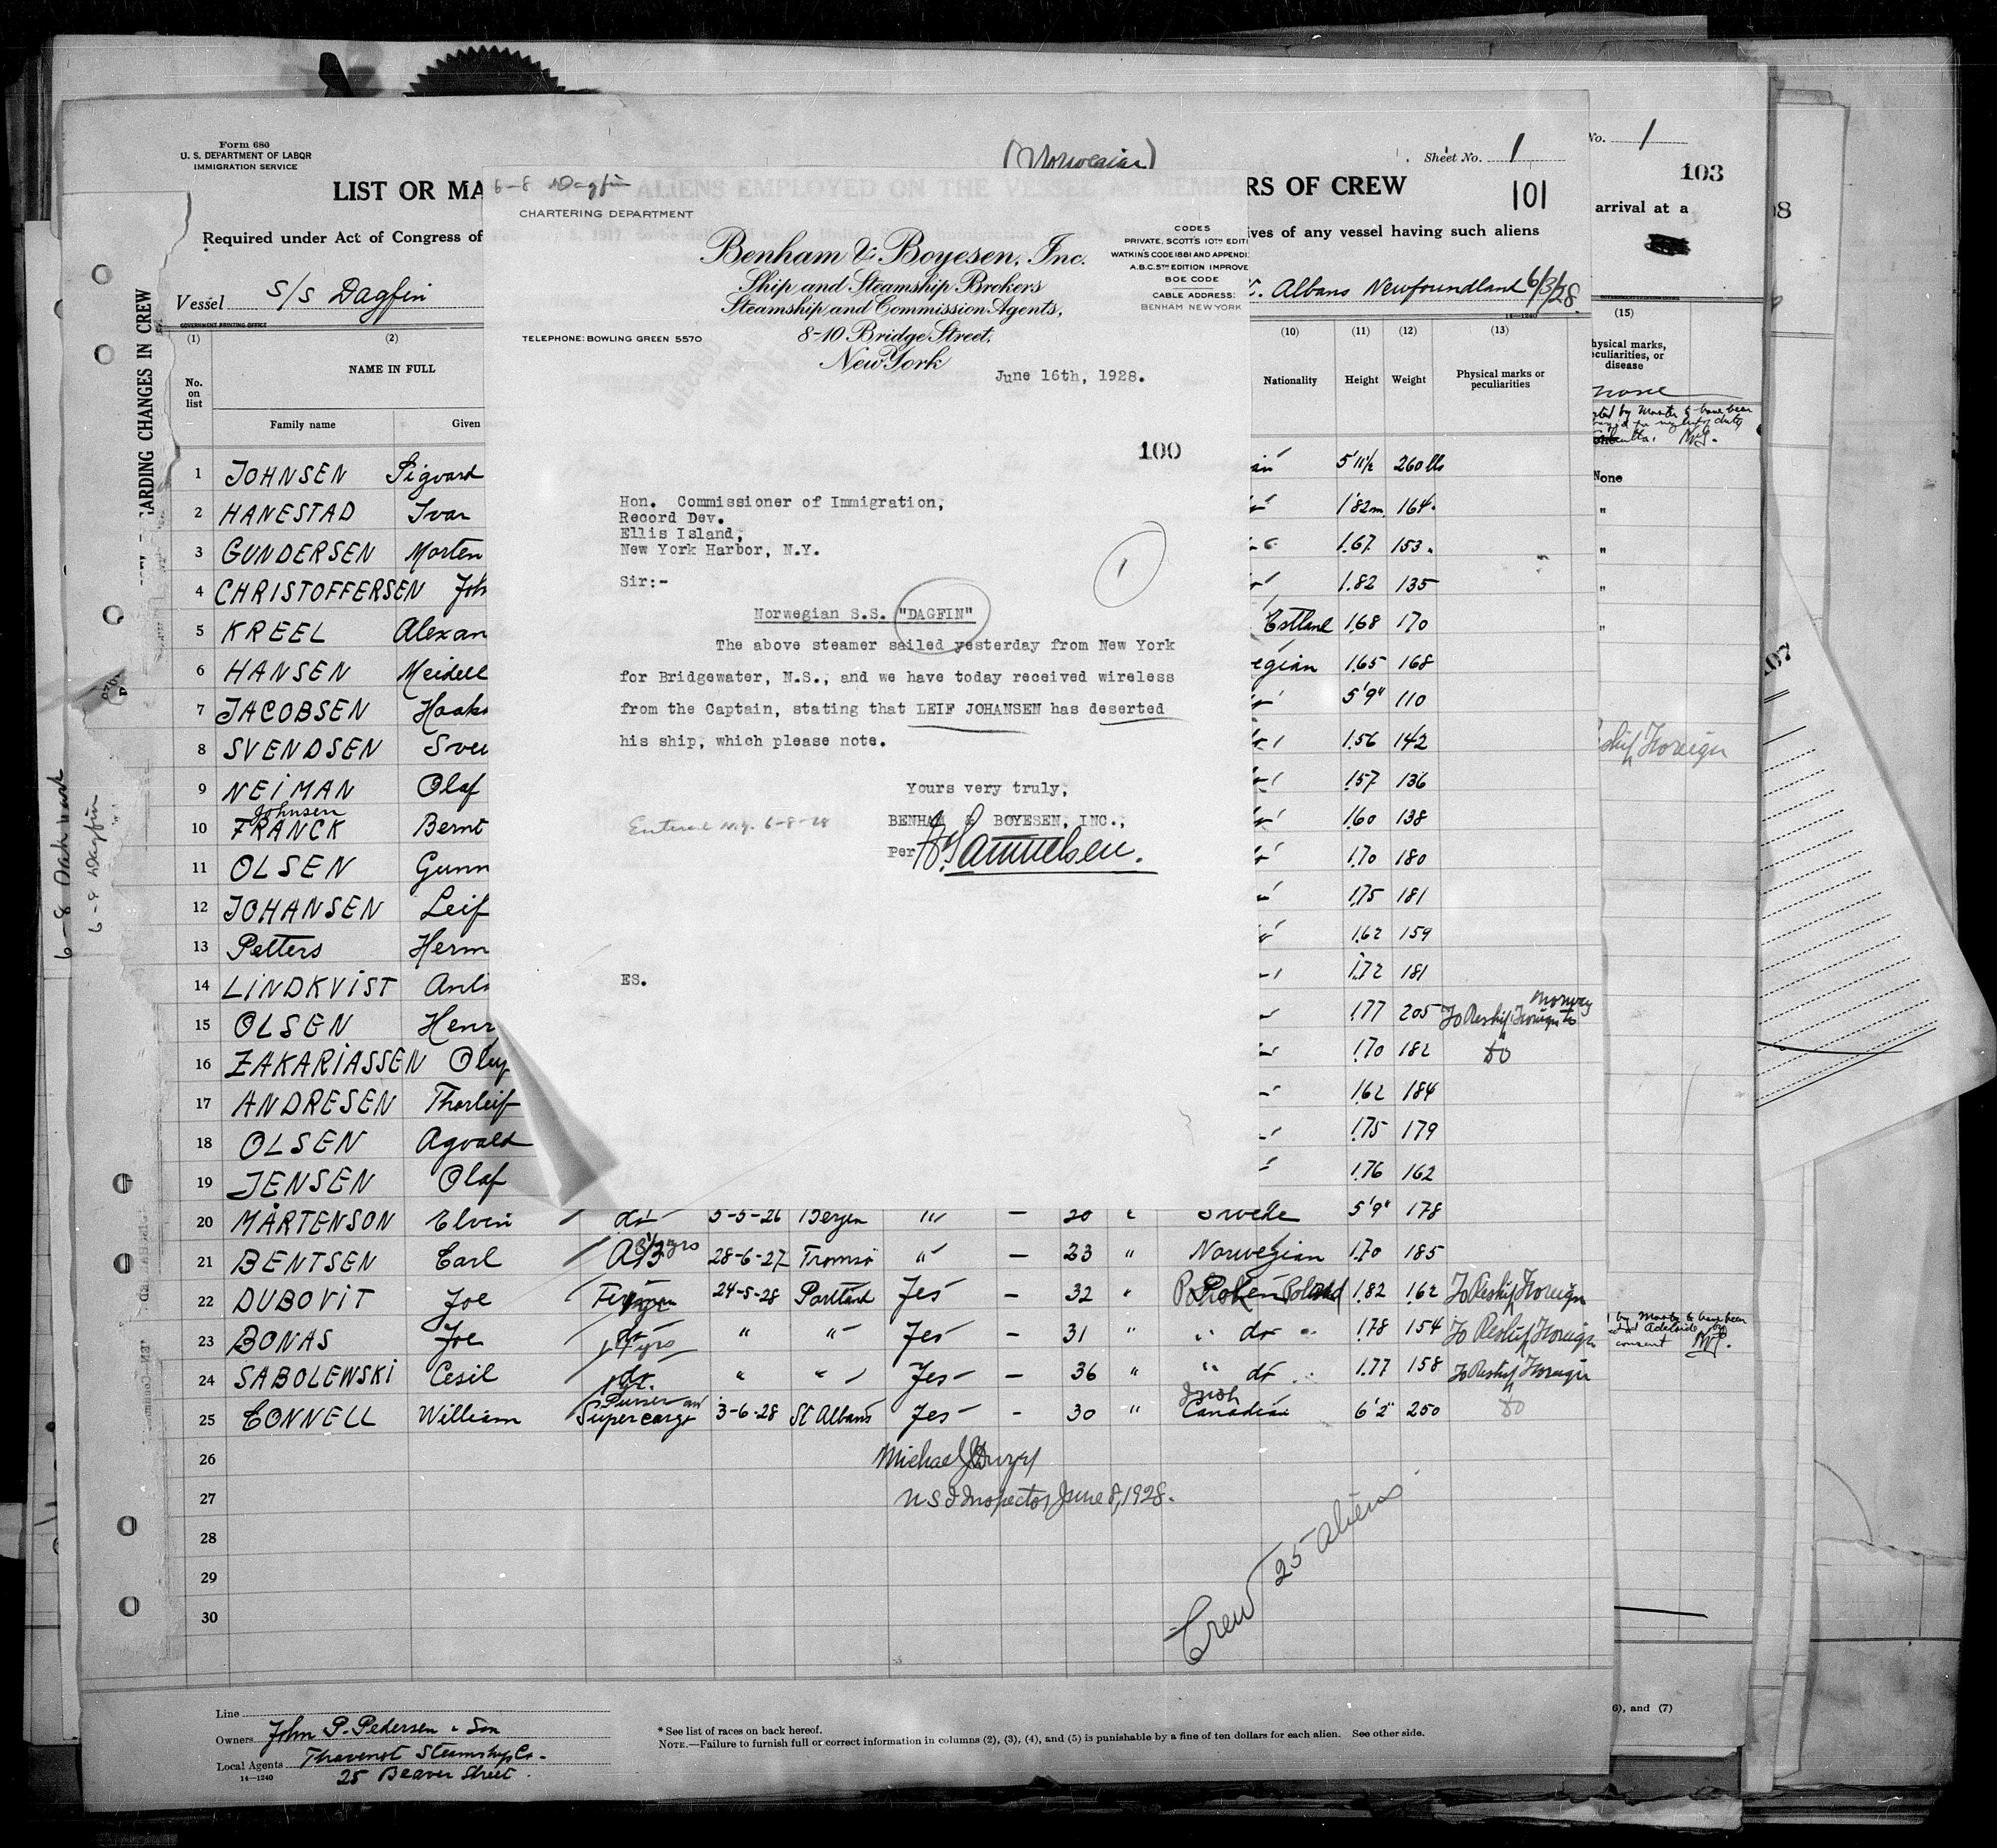 Form 680
U. S. DEPARTMENT OF LABOR
IMMIGRATION SERVICE
(Norwegian)
Sheet No. 1
LIST OR MA
RS OF CREW
101
Required under Act of Congress of
ives of any vessel having such aliens
Vessel S/S Dagfin
Albans Newfoundland 6/3/28.
GOVERNMENT PRINTING OFFICE
14—1240
ARDING CHANGES IN CREW
6-8 Dagfin
CHARTERING DEPARTMENT
Benham & Boyesen, Inc.
Ship and Steamship Brokers
Steamship and Commission Agents,
8-10 Bridge Street,
New York
TELEPHONE: BOWLING GREEN 5570
CODES
PRIVATE, SCOTT'S 10TH EDITI
WATKIN'S CODE 1881 AND APPENDI
A.B.C. 5TH EDITION IMPROVE
BOE CODE
CABLE ADDRESS:
BENHAM NEW YORK
June 16th, 1928.
100
Hon. Commissioner of Immigration,
Record Dev.
Ellis Island,
New York Harbor, N.Y.
1
Sir:-
Norwegian S.S. "DAGFIN"
The above steamer sailed yesterday from New York
for Bridgewater, N.S., and we have today received wireless
from the Captain, stating that LEIF JOHANSEN has deserted
his ship, which please note.
Yours very truly,
BENHAM & BOYESEN, INC.,
Per H. Samuelsen.
Entered N.Y. 6-8-28
ES.
(1) (2) (10) (11) (12) (13)
No. on list
NAME IN FULL
Family name Given
Nationality Height Weight Physical marks or peculiarities
1 JOHNSEN Sigvard 5'11½ 260 lbs
2 HANESTAD Ivar 1'82m. 164.
3 GUNDERSEN Morten 1.67 153.
4 CHRISTOFFERSEN Joh 1.82 135
5 KREEL Alexan Estland 1.68 170
6 HANSEN Meidell egian 1.65 168
7 JACOBSEN Haak 5'9" 110
8 SVENDSEN Sve 1.56 142
9 NEIMAN Olaf 1.57 136
Johnsen
10 FRANCK Bernt 1.60 138
11 OLSEN Gunn 1.70 180
12 JOHANSEN Leif 1.75 181
13 Petters Herm 1.62 159
14 LINDKVIST 1.72 181
15 OLSEN Henr 1.77 205 To Reship Foreign to Norway
16 ZAKARIASSEN 1.70 182 do
17 ANDRESEN Thorleif 1.62 184
18 OLSEN Agvald 1.75 179
19 JENSEN Olaf 1.76 162
20 MÅRTENSON Elvin do 5-5-26 Bergen " — 20 " Swede 5'9" 178
21 BENTSEN Earl 28-6-27 Tromsö " — 23 " Norwegian 1.70 185
22 DUBOVIT Joe 24-5-28 Portland Yes — 32 " Poland 1.82 162 To Reship Foreign
23 BONAS Joe do " " Yes — 31 " " do 1.78 154 To Reship Foreign
24 SABOLEWSKI Cesil do " " Yes — 36 " " do 1.77 158 To Reship Foreign
25 CONNELL William Purser and Supercargo 3-6-28 St Albans Yes - 30 " Irish Canadian 6'2" 250 do
26
27
28
29
30
Michael J.
U S I Inspector June 8, 1928.
Crew 25 aliens
Line
Owners John P. Pedersen & Son
Local Agents Thavenot Steamship Co.
25 Beaver Street.
14—1240
* See list of races on back hereof.
NOTE.—Failure to furnish full or correct information in columns (2), (3), (4), and (5) is punishable by a fine of ten dollars for each alien. See other side.
6-8 Dagfin
No. 1
103
arrival at a
(15)
hysical marks,
eculiarities, or
disease
none
None
"
"
"
"
ship Foreign
by Master to have been
Adelaide by
consent
6), and (7)